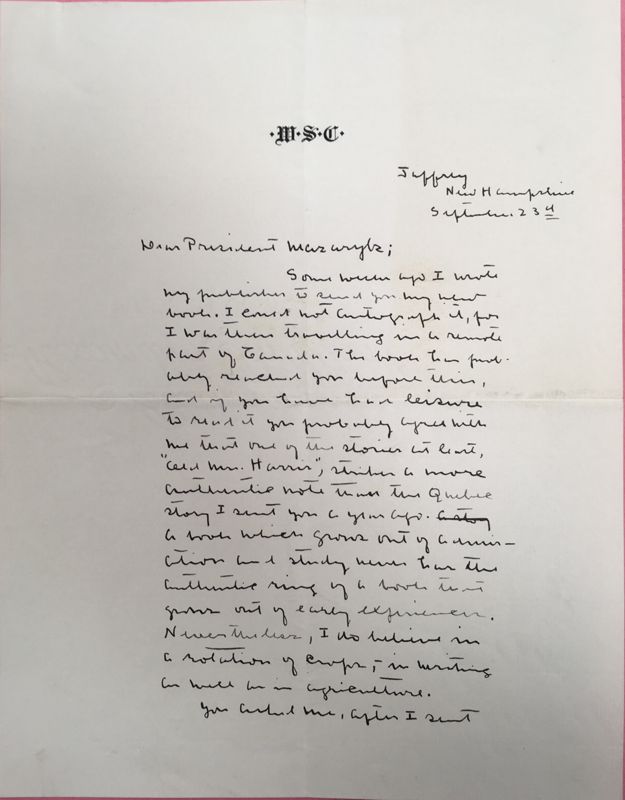 ·W·S·C·
Jaffrey
New Hampshire
September 23d
Dear President Mazaryk;
Some weeks ago I wrote
my publisher to send you my new
book. I could not autograph it, for
I was then travelling in a remote
part of Canada. The book has prob-
ably reached you before this,
and if you have had leisure
to read it you probably agree with
me that one of the stories at least,
"Old Mrs. Harris", strikes a more
authentic note than the Quebec
story I sent you a year ago. a story
a book which grows out of admir-
ation and study never has the
authentic ring of a book that
grows out of early experiences.
Nevertheless, I do believe in
a rotation of crops,- in writing
as well as in agriculture.
You asked me, after I sent